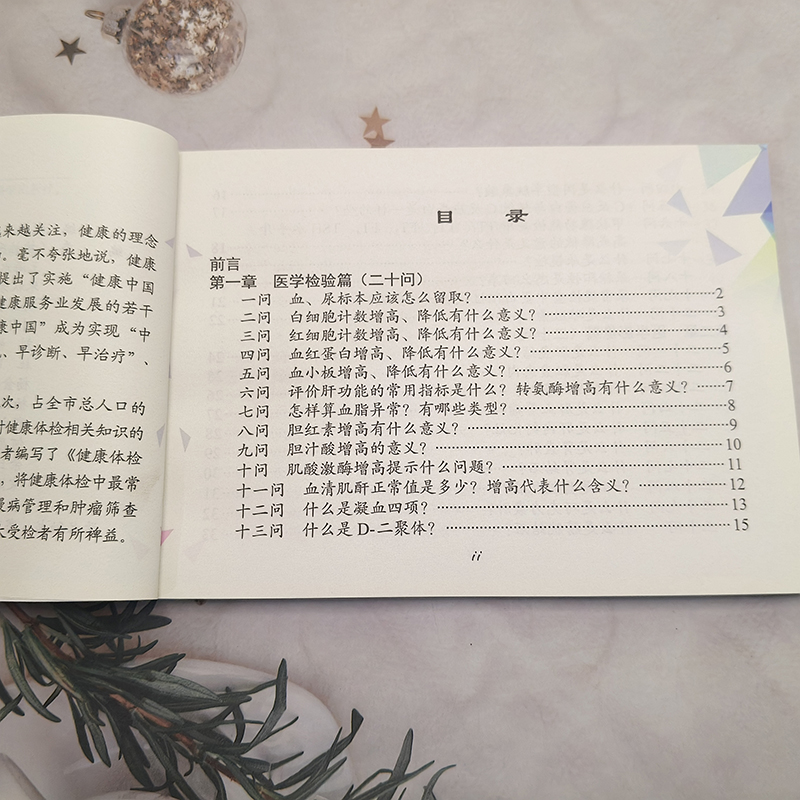 来越关注，健康的理念
毫不夸张地说，健康
提出了实施“健康中国
健康服务业发展的若干
康中国”成为实现“中
、早诊断、早治疗”、
次，占全市总人口的
对健康体检相关知识的
者编写了《健康体检
，将健康体检中最常
慢病管理和肿瘤筛查
大受检者有所裨益。
目 录
前言
第一章 医学检验篇（二十问）
一问 血、尿标本应该怎么留取？……2
二问 白细胞计数增高、降低有什么意义？……3
三问 红细胞计数增高、降低有什么意义？……4
四问 血红蛋白增高、降低有什么意义？……5
五问 血小板增高、降低有什么意义？……6
六问 评价肝功能的常用指标是什么？转氨酶增高有什么意义？……7
七问 怎样算血脂异常？有哪些类型？……8
八问 胆红素增高有什么意义？……9
九问 胆汁酸增高的意义？……10
十问 肌酸激酶增高提示什么问题？……11
十一问 血清肌酐正常值是多少？增高代表什么含义？……12
十二问 什么是凝血四项？……13
十三问 什么是D-二聚体？……15
ii